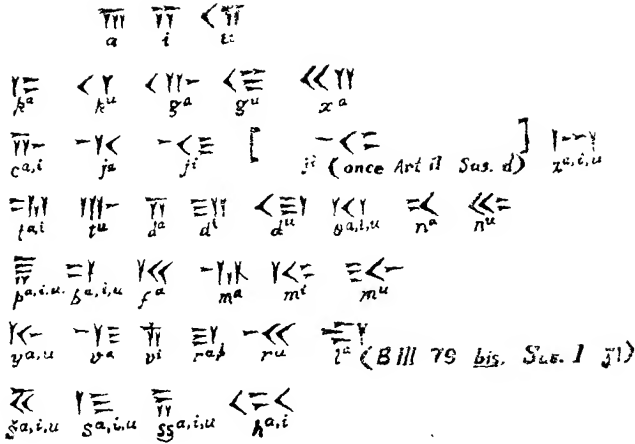 𐎠 𐎡 𐎢
a i u
𐎣 𐎤 𐎥 𐎦 𐎧
kᵃ kᵘ gᵃ gᵘ xᵃ
𐎨 𐎩 𐎪 [ ] 𐏀
cᵃ,ⁱ jᵃ jⁱ jⁱ (once Art II Sus. d) zᵃ,ⁱ,ᵘ
𐎫 𐎬 𐎭 𐎮 𐎯 𐎰 𐎴 𐎵
tᵃ,ⁱ tᵘ dᵃ dⁱ dᵘ θᵃ,ⁱ,ᵘ nᵃ nᵘ
𐎱 𐎲 𐎳 𐎶 𐎷 𐎸
pᵃ,ⁱ,ᵘ bᵃ,ⁱ,ᵘ fᵃ mᵃ mⁱ mᵘ
𐎹 𐎺 𐎻 𐎼 𐎽 𐎾
yᵃ,ᵘ vᵃ vⁱ rᵃ,ⁱ rᵘ lᵃ (B III 79 bis. Sus. I
𐏁 𐎿 𐏂 𐏃
šᵃ,ⁱ,ᵘ sᵃ,ⁱ,ᵘ ssᵃ,ⁱ,ᵘ hᵃ,ⁱ